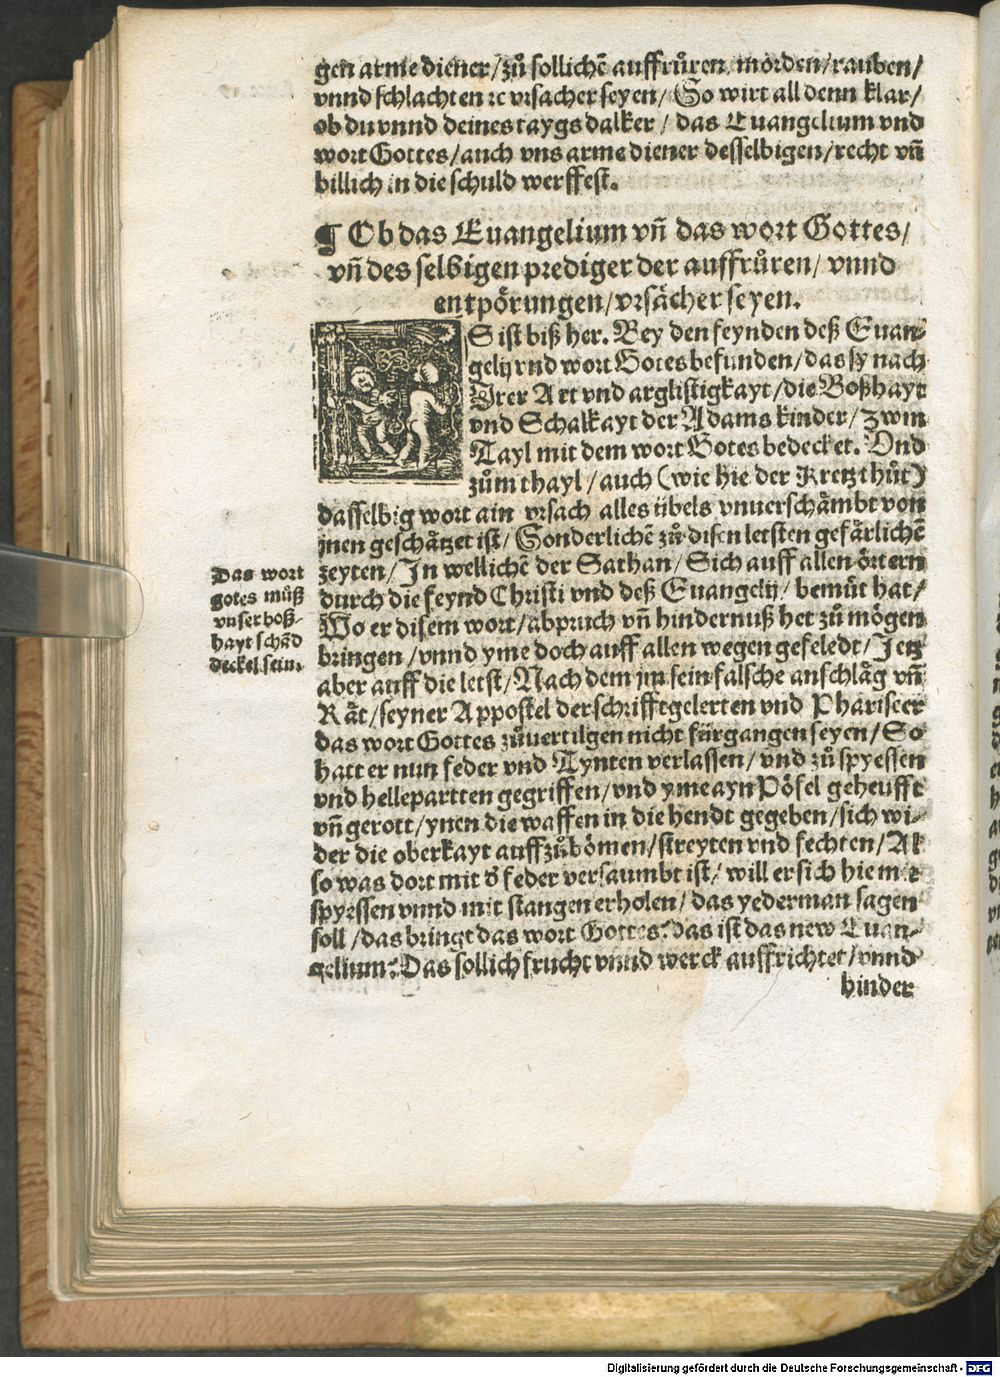 gen arme diener/zů sollichē auffrůren, mörden/rauben/
vnnd schlachten ꝛc vrsacher seyen/ So wirt all denn klar/
ob du vnnd deines taygs dalker/ das Euangelium vnd
wort Gottes/auch vns arme diener desselbigen/recht vñ
billich in die schuld werffest.
¶ Ob das Euangelium vñ das wort Gottes/
vñ des selbigen prediger der auffrůren/ vnnd
entpörungen/vrsächer seyen.
ES ist biß her. Bey den feynden deß Euan-
gelij vnd wort Gotes befunden/das sy nach
Irer Art vnd arglistigkayt/die Boßhayt
vnd Schalkayt der Adams kinder/ zwm
Tayl mit dem wort Gotes bedecket. Vnd
zům thayl/auch (wie hie der Kretzthůt)
dasselbig wort ain vrsach alles übels vnuerschämbt von
jnen geschätzet ist/ Sonderlichē zů disen letsten gefärlichē
zeyten/In wellichē der Sathan/Sich auff allen örtern
durch die feynd Christi vnd deß Euangelij/ bemüt hat/
Wo er disem wort/abpruch vñ hindernuß het zů mögen
bringen/vnnd yme doch auff allen wegen gefeledt/Jetz
aber auff die letst/Nach dem jm sein falsche anschläg vñ
Rät/seyner Appostel der schrifftgelerten vnd Phariseer
das wort Gottes zůuertilgen nicht fürgangen seyen/So
hatt er nun feder vnd Tynten verlassen/vnd zů spyessen
vnd hellepartten gegriffen/vnd yme ayn Pöfel geheufft
vñ gerott/ynen die waffen in die hendt gegeben/sich wi-
der die oberkayt auffzůbömen/streyten vnd fechten/Al
so was dort mit d' feder versaumbt ist/ will er sich hie mit
spyessen vnnd mit stangen erholen/das yederman sagen
soll/das bringt das wort Gottes: das ist das new Euan-
gelium: Das sollich frucht vnnd werck auffrichtet/vnnd
hinder
Das wort
gotes můß
vnser boß-
hayt schād
deckel sein.
Digitalisierung gefördert durch die Deutsche Forschungsgemeinschaft - DFG